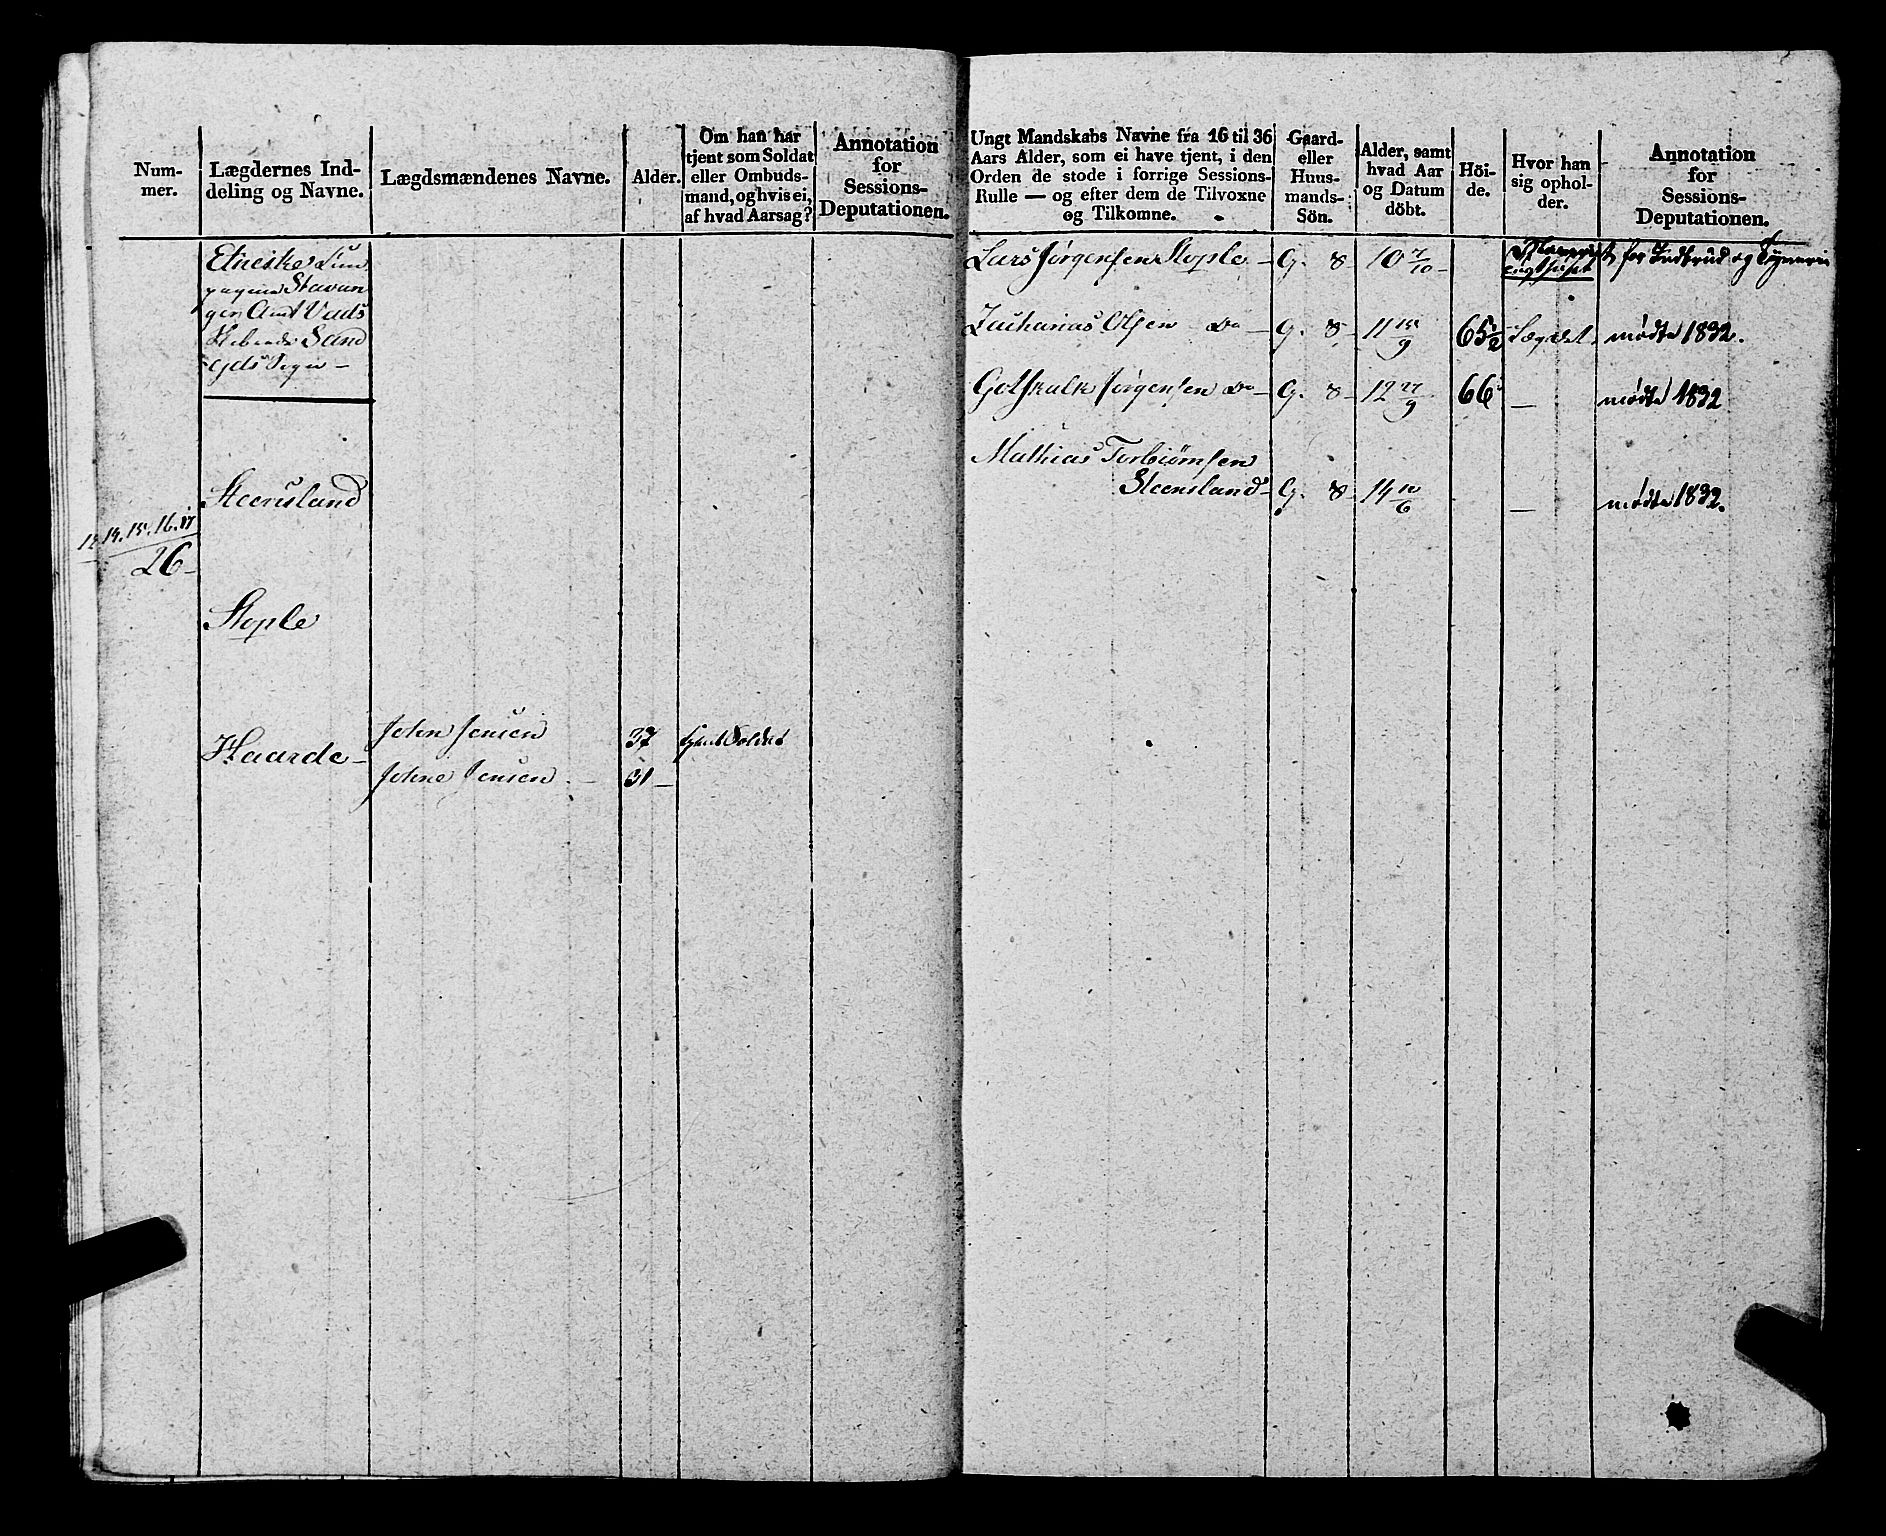 Num-
mer.
Lægdernes Ind-
deling og Navne.
Lægdsmændenes Navne.
Alder.
Om han har
tjent som Soldat
eller Ombuds-
mand, og hvis ei,
af hvad Aarsag?
Annotation
for
Sessions-
Deputationen.
Etneske Kum
pagnie Stavan
ger Amt Vads
Sand
Sogn –
Steensland
14. 15. 16. 17
26 –
Stople
Haarde –
John Jensen
37
tjent Soldat
Johne Jensen –
31 –
Ungt Mandskabs Navne fra 16 til 36
Aars Alder, som ei have tjent, i den
Orden de stode i forrige Sessions-
Rulle — og efter dem de Tilvoxne
og Tilkomne.
Gaard-
eller
Huus-
mands-
Sön.
Alder, samt
hvad Aar
og Datum
döbt.
Höi-
de.
Hvor han
sig ophol-
der.
Annotation
for
Sessions-
Deputationen.
Lars Jørgensen Stople – G. 8 – 10 7/10 – for Indbrud og Tyverie
Zacharias Olsen Do – G. 8 – 11 15/9 65 1/2 Lægdet. mødte 1832.
Gotskalk Jørgensen Do – G. 8 – 12 27/9 66 – mødte 1832
Mathias Torbiørnsen
Steensland – G. 8 – 14 10/6 – mødte 1832.